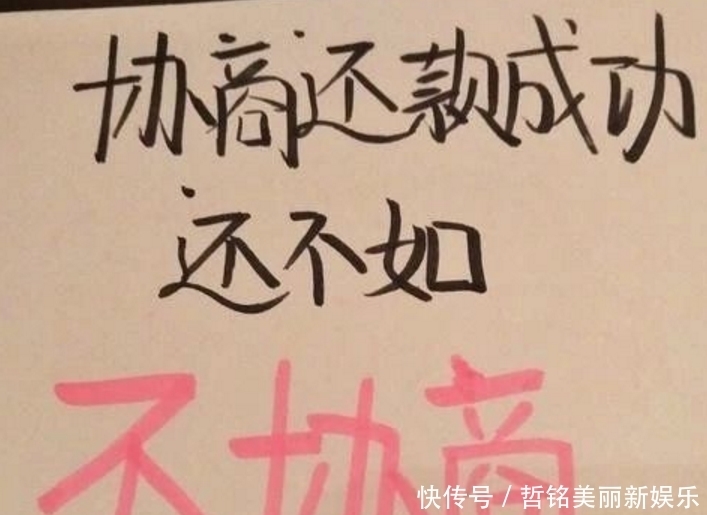 协商还款成功
还不如
不协商
快传号 / 哲铭美丽新娱乐